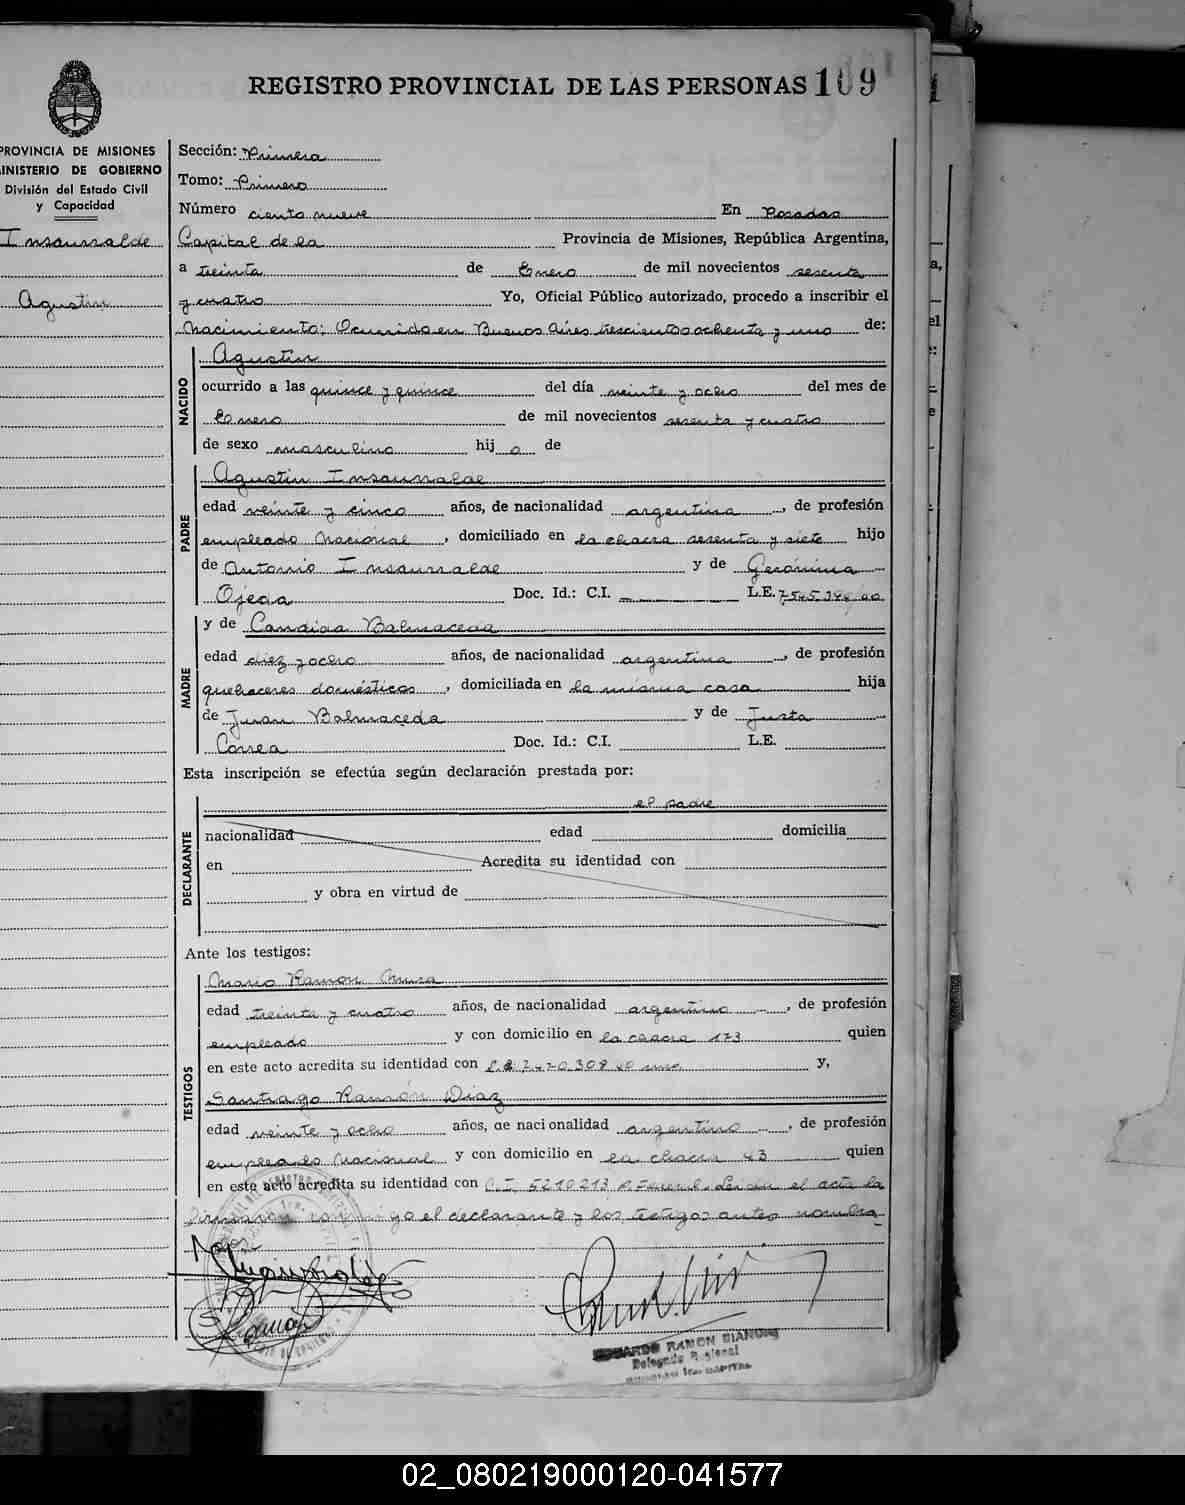 REGISTRO PROVINCIAL DE LAS PERSONAS 109
PROVINCIA DE MISIONES
MINISTERIO DE GOBIERNO
División del Estado Civil
y Capacidad
Insaurralde
Agustin
Sección: Primera
Tomo: Primero
Número ciento nueve En Posadas
Capital de la Provincia de Misiones, República Argentina,
a treinta de Enero de mil novecientos sesenta
y cuatro Yo, Oficial Público autorizado, procedo a inscribir el
Nacimiento: Ocurrido en Buenos Aires trescientos ochenta y uno de:
NACIDO
Agustin
ocurrido a las quince y quince del día veinte y ocho del mes de
Enero de mil novecientos sesenta y cuatro
de sexo masculino hij o de
PADRE
Agustin Insaurralde
edad veinte y cinco años, de nacionalidad argentina, de profesión
empleado Nacional, domiciliado en la chacra sesenta y siete hijo
de Antonio Insaurralde y de Gerónima
Ojeda Doc. Id.: C.I. L.E.
MADRE
y de Candida Balmaceda
edad diez y ocho años, de nacionalidad argentina, de profesión
quehaceres domésticos, domiciliada en la misma casa hija
de Juan Balmaceda y de Justa
Correa Doc. Id.: C.I. L.E.
Esta inscripción se efectúa según declaración prestada por:
DECLARANTE
el padre
nacionalidad edad domicilia
en Acredita su identidad con
y obra en virtud de
Ante los testigos:
TESTIGOS
Mario Ramon
edad treinta y cuatro años, de nacionalidad argentino, de profesión
empleado y con domicilio en la chacra 173 quien
en este acto acredita su identidad con y,
Santiago Ramón Diaz
edad veinte y ocho años, de nacionalidad argentino, de profesión
empleado Nacional y con domicilio en la chacra 43 quien
en este acto acredita su identidad con C.I. 5210213 P. Federal. Leida el acta la
firmaron conmigo el declarante y los testigos antes nombra
dos
EDUARDO RAMON BIANCHI
Delegado Regional
02_080219000120-041577